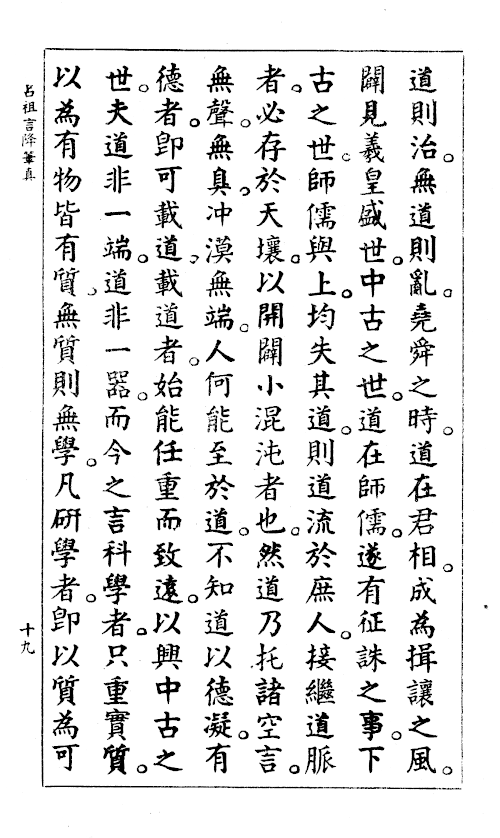 道則治。無道則亂。堯舜之時。道在君相。成為揖讓之風。
闢見羲皇盛世。中古之世。道在師儒。遂有征誅之事。下
古之世。師儒與上。均失其道。則道流於庶人。接繼道脈
者。必存於天壤。以開闢小混沌者也。然道乃托諸空言。
無聲。無臭。冲漠無端。人何能至於道。不知道以德凝。有
德者。卽可載道。載道者。始能任重而致遠。以興中古之
世。夫道非一端。道非一器。而今之言科學者。只重實質。
以為有物皆有質。無質則無學。凡研學者。卽以質為可
呂祖言降筆真
十九